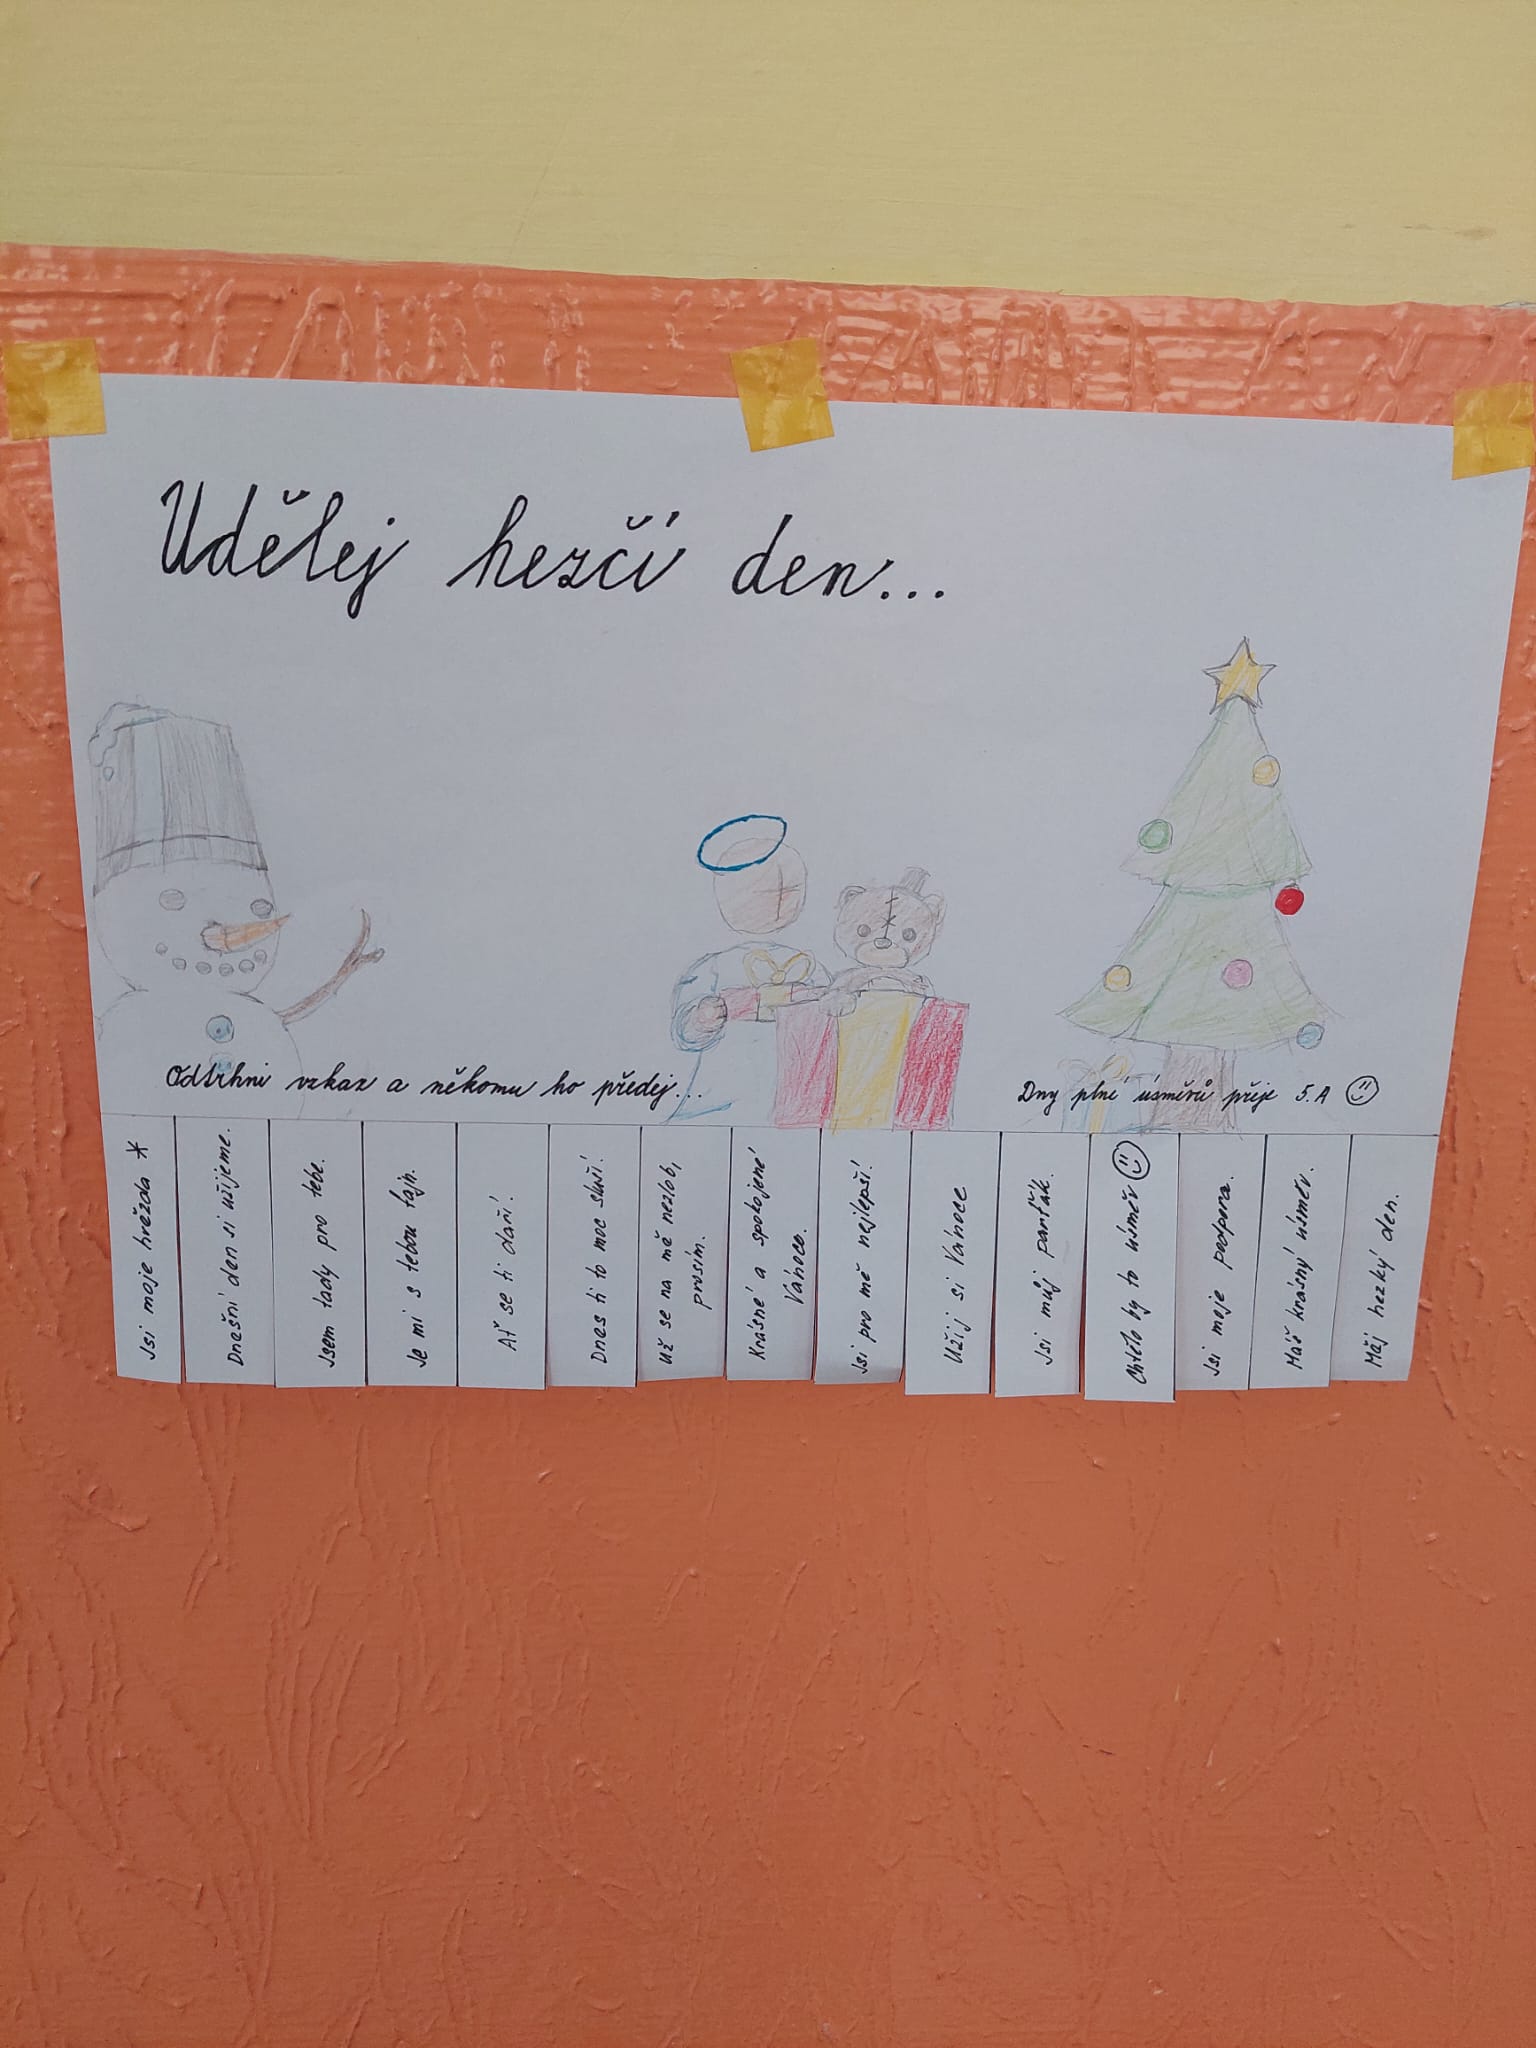 Udělej hezčí den...
Odtrhni vzkaz a někomu ho předej...
Dny plné úsměvů přeje 5.A
Jsi moje hvězda *
Dnešní den si užijeme.
Jsem tady pro tebe.
Je mi s tebou fajn.
Ať se ti daří!
Dnes ti to moc sluší!
Už se na mě nezlob,
prosím.
Krásné a spokojené
Vánoce.
Jsi pro mě nejlepší!
Užij si Vánoce
Jsi můj parťák.
Chtělo by to úsměv
Jsi moje podpora.
Máš krásný úsměv.
Měj hezký den.